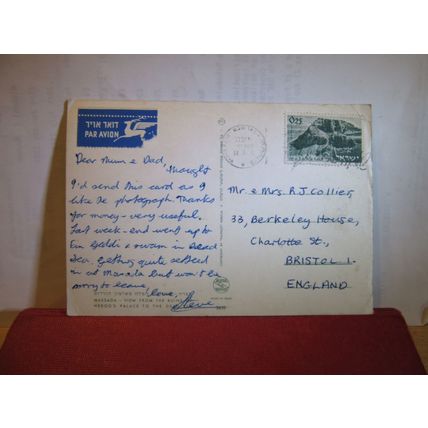 דואר אויר
PAR AVION
0.25
ישראל
Dear Mum & Dad,
thought
I'd send this card as I
like the photograph. Thanks
for money - very useful.
Last week-end went up to
Ein Geddi & swam in Dead
Sea. Getting quite settled
in at Masada but won't be
sorry to leave,
love,
Steve
MASSADA - VIEW FROM THE
HEROD'S PALACE TO THE
Mr & Mrs R.J Collier,
33, Berkeley House,
Charlotte St.,
BRISTOL 1.
ENGLAND